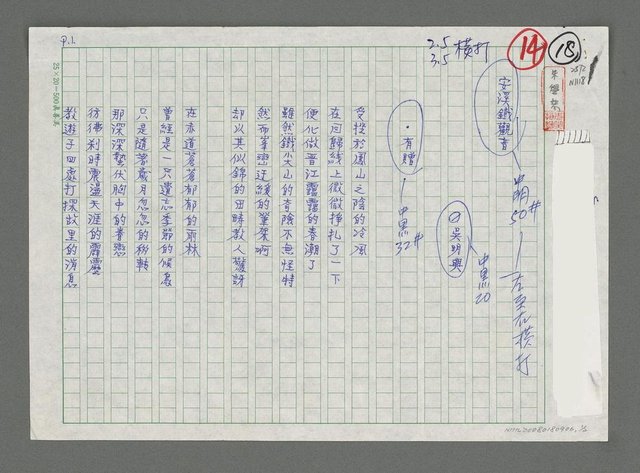 P.1.
25×20=500
2.5
3.5 橫打
14
18
安溪鐵觀音
中明
50#
左至右橫打
吳明興
中黑
20
·有贈
中黑
32#
受授於鳳山之陰的冷風
在回歸線上微微掙扎了一下
便化做晋江靄靄的春潮了
雖然鐵尖山的奇險不無怪特
然而峯巒迂緩的筆架啊
却以其似錦的田疇教人驚訝
在赤道蒼蒼郁郁的雨林
曾經是一只遺忘季節的候鳥
只是隨著歲月忽忽的移轉
那深深蟄伏胸中的眷戀
彷彿刹時震盪天涯的霹靂
教遊子四處打探故里的消息
NMTL20080180906, 1/2